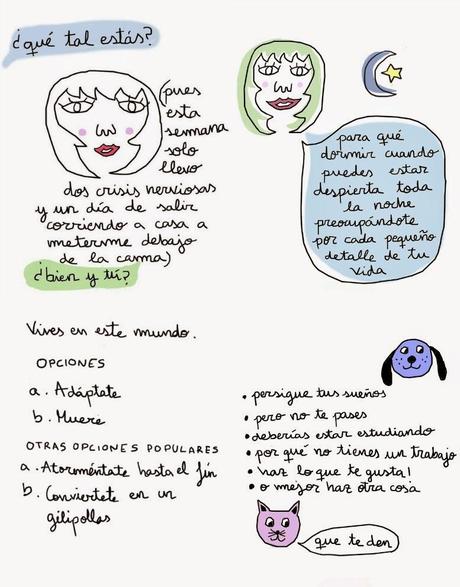 ¿qué tal estás?
(pues
esta
semana
solo
llevo
dos crisis nerviosas
y un día de salir
corriendo a casa a
meterme debajo
de la cama)
¿bien y tú?
para qué
dormir cuando
puedes estar
despierta toda
la noche
preocupándote
por cada pequeño
detalle de tu
vida
Vives en este mundo.
OPCIONES
a. Adáptate
b. Muere
OTRAS OPCIONES POPULARES
a. Atorméntate hasta el fin
b. Conviértete en un
gilipollas
• persigue tus sueños
• pero no te pases
• deberías estar estudiando
• por qué no tienes un trabajo
• haz lo que te gusta!
• o mejor haz otra cosa
que te den